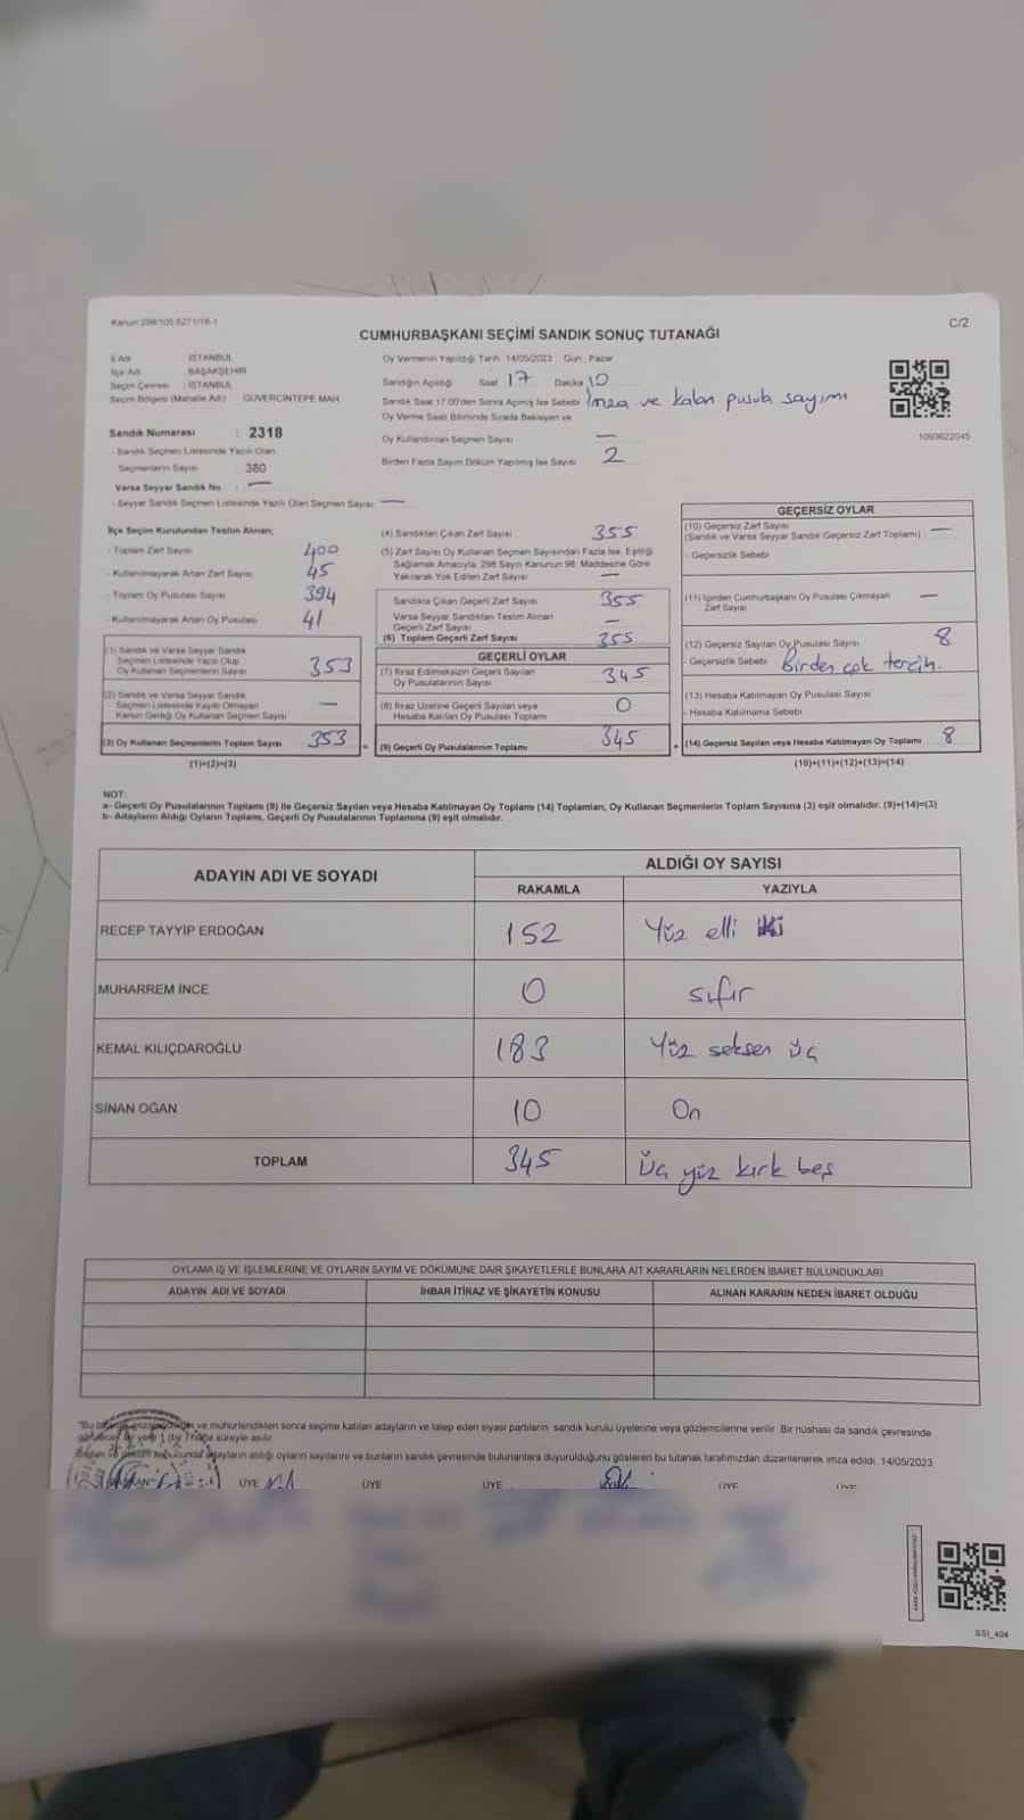 Kanun 298/105 6271/16-1
C/2
CUMHURBAŞKANI SEÇİMİ SANDIK SONUÇ TUTANAĞI
İl Adı : İSTANBUL
İlçe Adı : BAŞAKŞEHİR
Seçim Çevresi : İSTANBUL
Seçim Bölgesi (Mahalle Adı) : GÜVERCİNTEPE MAH.
Oy Vermenin Yapıldığı Tarih: 14/05/2023 Gün: Pazar
Sandığın Açıldığı Saat 17 Dakika 10
Sandık Saat 17:00'den Sonra Açılmış İse Sebebi İmza ve kalan pusula sayımı
Oy Verme Saati Bitiminde Sırada Bekleyen ve
Oy Kullandırılan Seçmen Sayısı —
Birden Fazla Sayım Döküm Yapılmış İse Sayısı 2
1093622045
Sandık Numarası : 2318
- Sandık Seçmen Listesinde Yazılı Olan
Seçmenlerin Sayısı 380
Varsa Seyyar Sandık No : —
- Seyyar Sandık Seçmen Listesinde Yazılı Olan Seçmen Sayısı: —
İlçe Seçim Kurulundan Teslim Alınan;
- Toplam Zarf Sayısı 400
- Kullanılmayarak Artan Zarf Sayısı 45
- Toplam Oy Pusulası Sayısı 394
- Kullanılmayarak Artan Oy Pusulası 41
(1) Sandık ve Varsa Seyyar Sandık
Seçmen Listesinde Yazılı Olup
Oy Kullanan Seçmenlerin Sayısı 353
(2) Sandık ve Varsa Seyyar Sandık
Seçmen Listesinde Kayıtlı Olmayan
Kanun Gereği Oy Kullanan Seçmen Sayısı —
(3) Oy Kullanan Seçmenlerin Toplam Sayısı 353
(1)+(2)=(3)
(4) Sandıktan Çıkan Zarf Sayısı 355
(5) Zarf Sayısı Oy Kullanan Seçmen Sayısından Fazla İse, Eşitliği
Sağlamak Amacıyla, 298 Sayılı Kanunun 98. Maddesine Göre
Yakılarak Yok Edilen Zarf Sayısı —
Sandıkta Çıkan Geçerli Zarf Sayısı 355
Varsa Seyyar Sandıktan Teslim Alınan
Geçerli Zarf Sayısı —
(6) Toplam Geçerli Zarf Sayısı 355
GEÇERLİ OYLAR
(7) İtiraz Edilmeksizin Geçerli Sayılan
Oy Pusulalarının Sayısı 345
(8) İtiraz Üzerine Geçerli Sayılan veya
Hesaba Katılan Oy Pusulası Toplamı 0
(9) Geçerli Oy Pusulalarının Toplamı 345
GEÇERSİZ OYLAR
(10) Geçersiz Zarf Sayısı
(Sandık ve Varsa Seyyar Sandık Geçersiz Zarf Toplamı) —
- Geçersizlik Sebebi
(11) İçinden Cumhurbaşkanı Oy Pusulası Çıkmayan
Zarf Sayısı —
(12) Geçersiz Sayılan Oy Pusulası Sayısı 8
- Geçersizlik Sebebi Birden çok tercih.
(13) Hesaba Katılmayan Oy Pusulası Sayısı
- Hesaba Katılmama Sebebi
(14) Geçersiz Sayılan veya Hesaba Katılmayan Oy Toplamı 8
(10)+(11)+(12)+(13)=(14)
NOT:
a- Geçerli Oy Pusulalarının Toplamı (9) ile Geçersiz Sayılan veya Hesaba Katılmayan Oy Toplamı (14) Toplamları, Oy Kullanan Seçmenlerin Toplam Sayısına (3) eşit olmalıdır. (9)+(14)=(3)
b- Adayların Aldığı Oyların Toplamı, Geçerli Oy Pusulalarının Toplamına (9) eşit olmalıdır.
ADAYIN ADI VE SOYADI
ALDIĞI OY SAYISI
RAKAMLA YAZIYLA
RECEP TAYYİP ERDOĞAN 152 Yüz elli iki
MUHARREM İNCE 0 sıfır
KEMAL KILIÇDAROĞLU 183 Yüz seksen üç
SİNAN OĞAN 10 On
TOPLAM 345 Üç yüz kırk beş
OYLAMA İŞ VE İŞLEMLERİNE VE OYLARIN SAYIM VE DÖKÜMÜNE DAİR ŞİKAYETLERLE BUNLARA AİT KARARLARIN NELERDEN İBARET BULUNDUKLARI
ADAYIN ADI VE SOYADI İHBAR İTİRAZ VE ŞİKAYETİN KONUSU ALINAN KARARIN NEDEN İBARET OLDUĞU
ve mühürlendikten sonra seçime katılan adayların ve talep eden siyasi partilerin sandık kurulu üyelerine veya gözlemcilerine verilir. Bir nüshası da sandık çevresinde
süreyle asılır.
adayların aldığı oyların sayılarını ve bunların sandık çevresinde bulunanlara duyurulduğunu gösteren bu tutanak tarafımızdan düzenlenerek imza edildi. 14/05/2023
BAŞKAN ÜYE ÜYE ÜYE ÜYE ÜYE
SSI_404